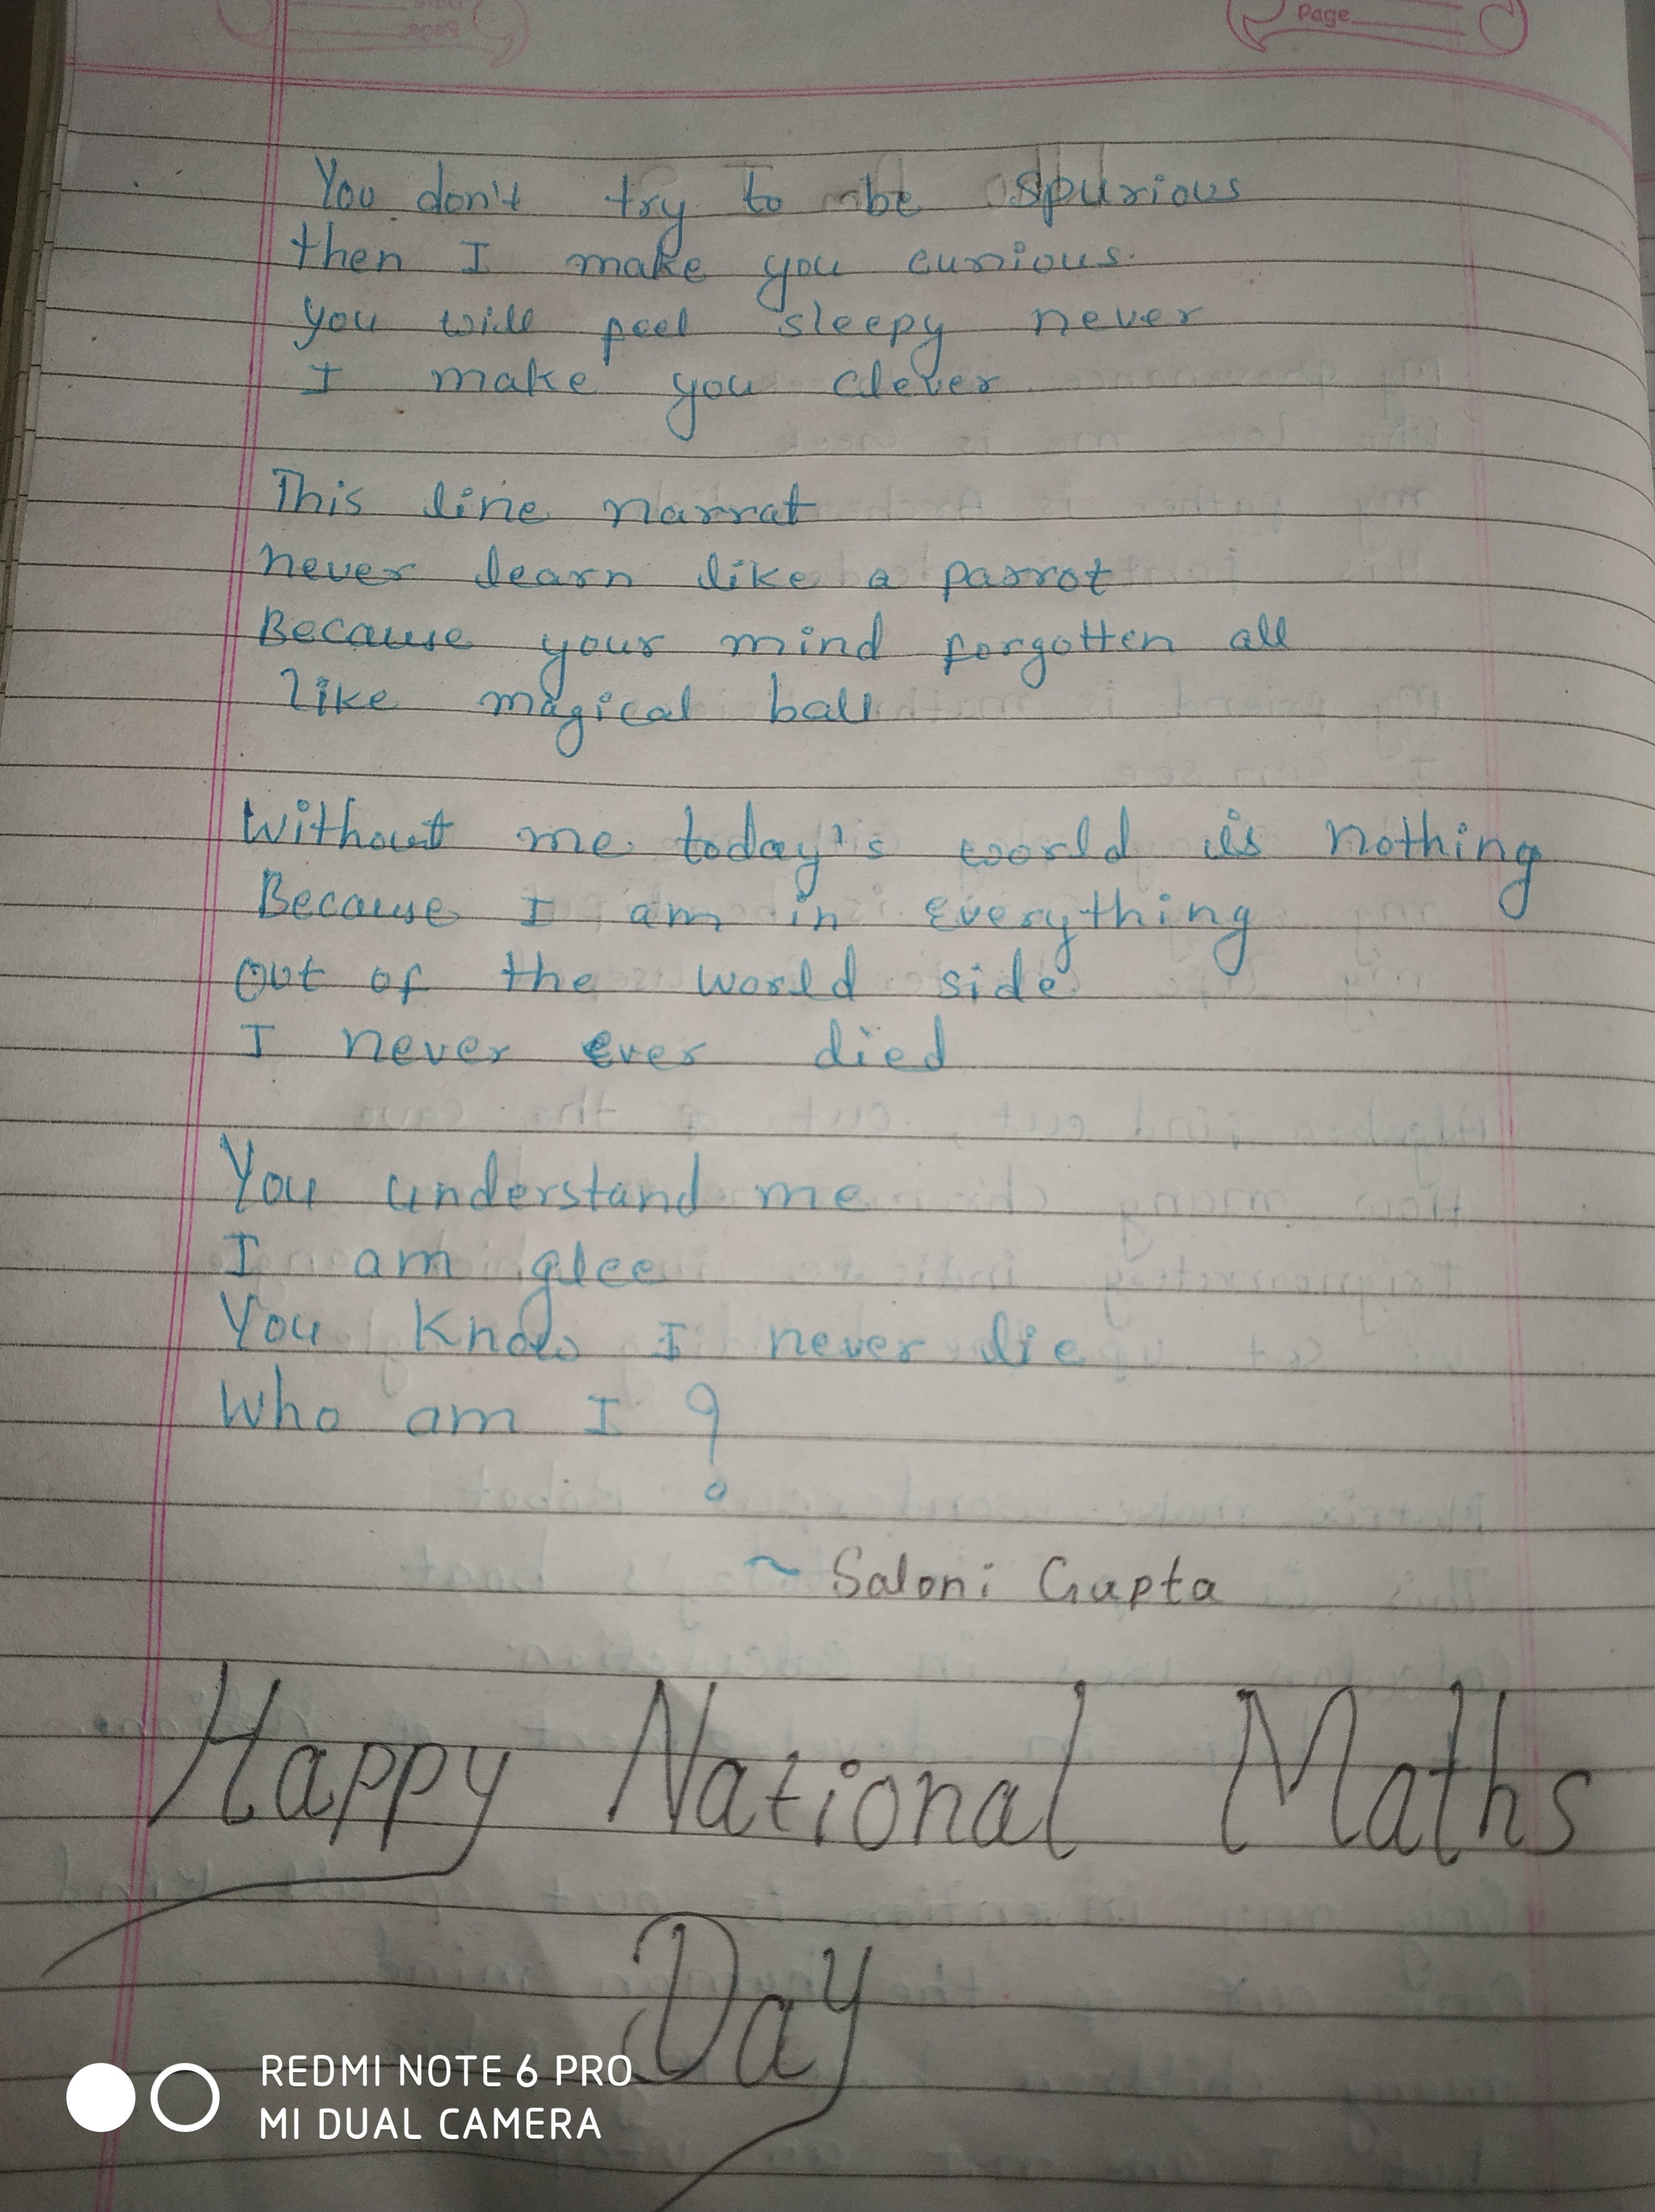 Page
You don't try to be spurious
then I make you curious.
you will feel sleepy never
I make you clever
This line narrat
never learn like a parrot
Because your mind forgotten all
like magical ball
Without me today's world is nothing
Because I am in everything
out of the world side
I never ever died
You understand me
I am glee
You know I never die
Who am I ?
~ Saloni Gupta
Happy National Maths
Day
REDMI NOTE 6 PRO
MI DUAL CAMERA